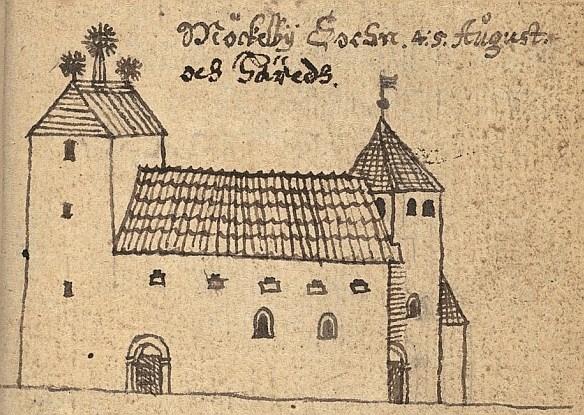 Möckelbÿ Sochn. 4. 5. Aůgust.
och Häreds.